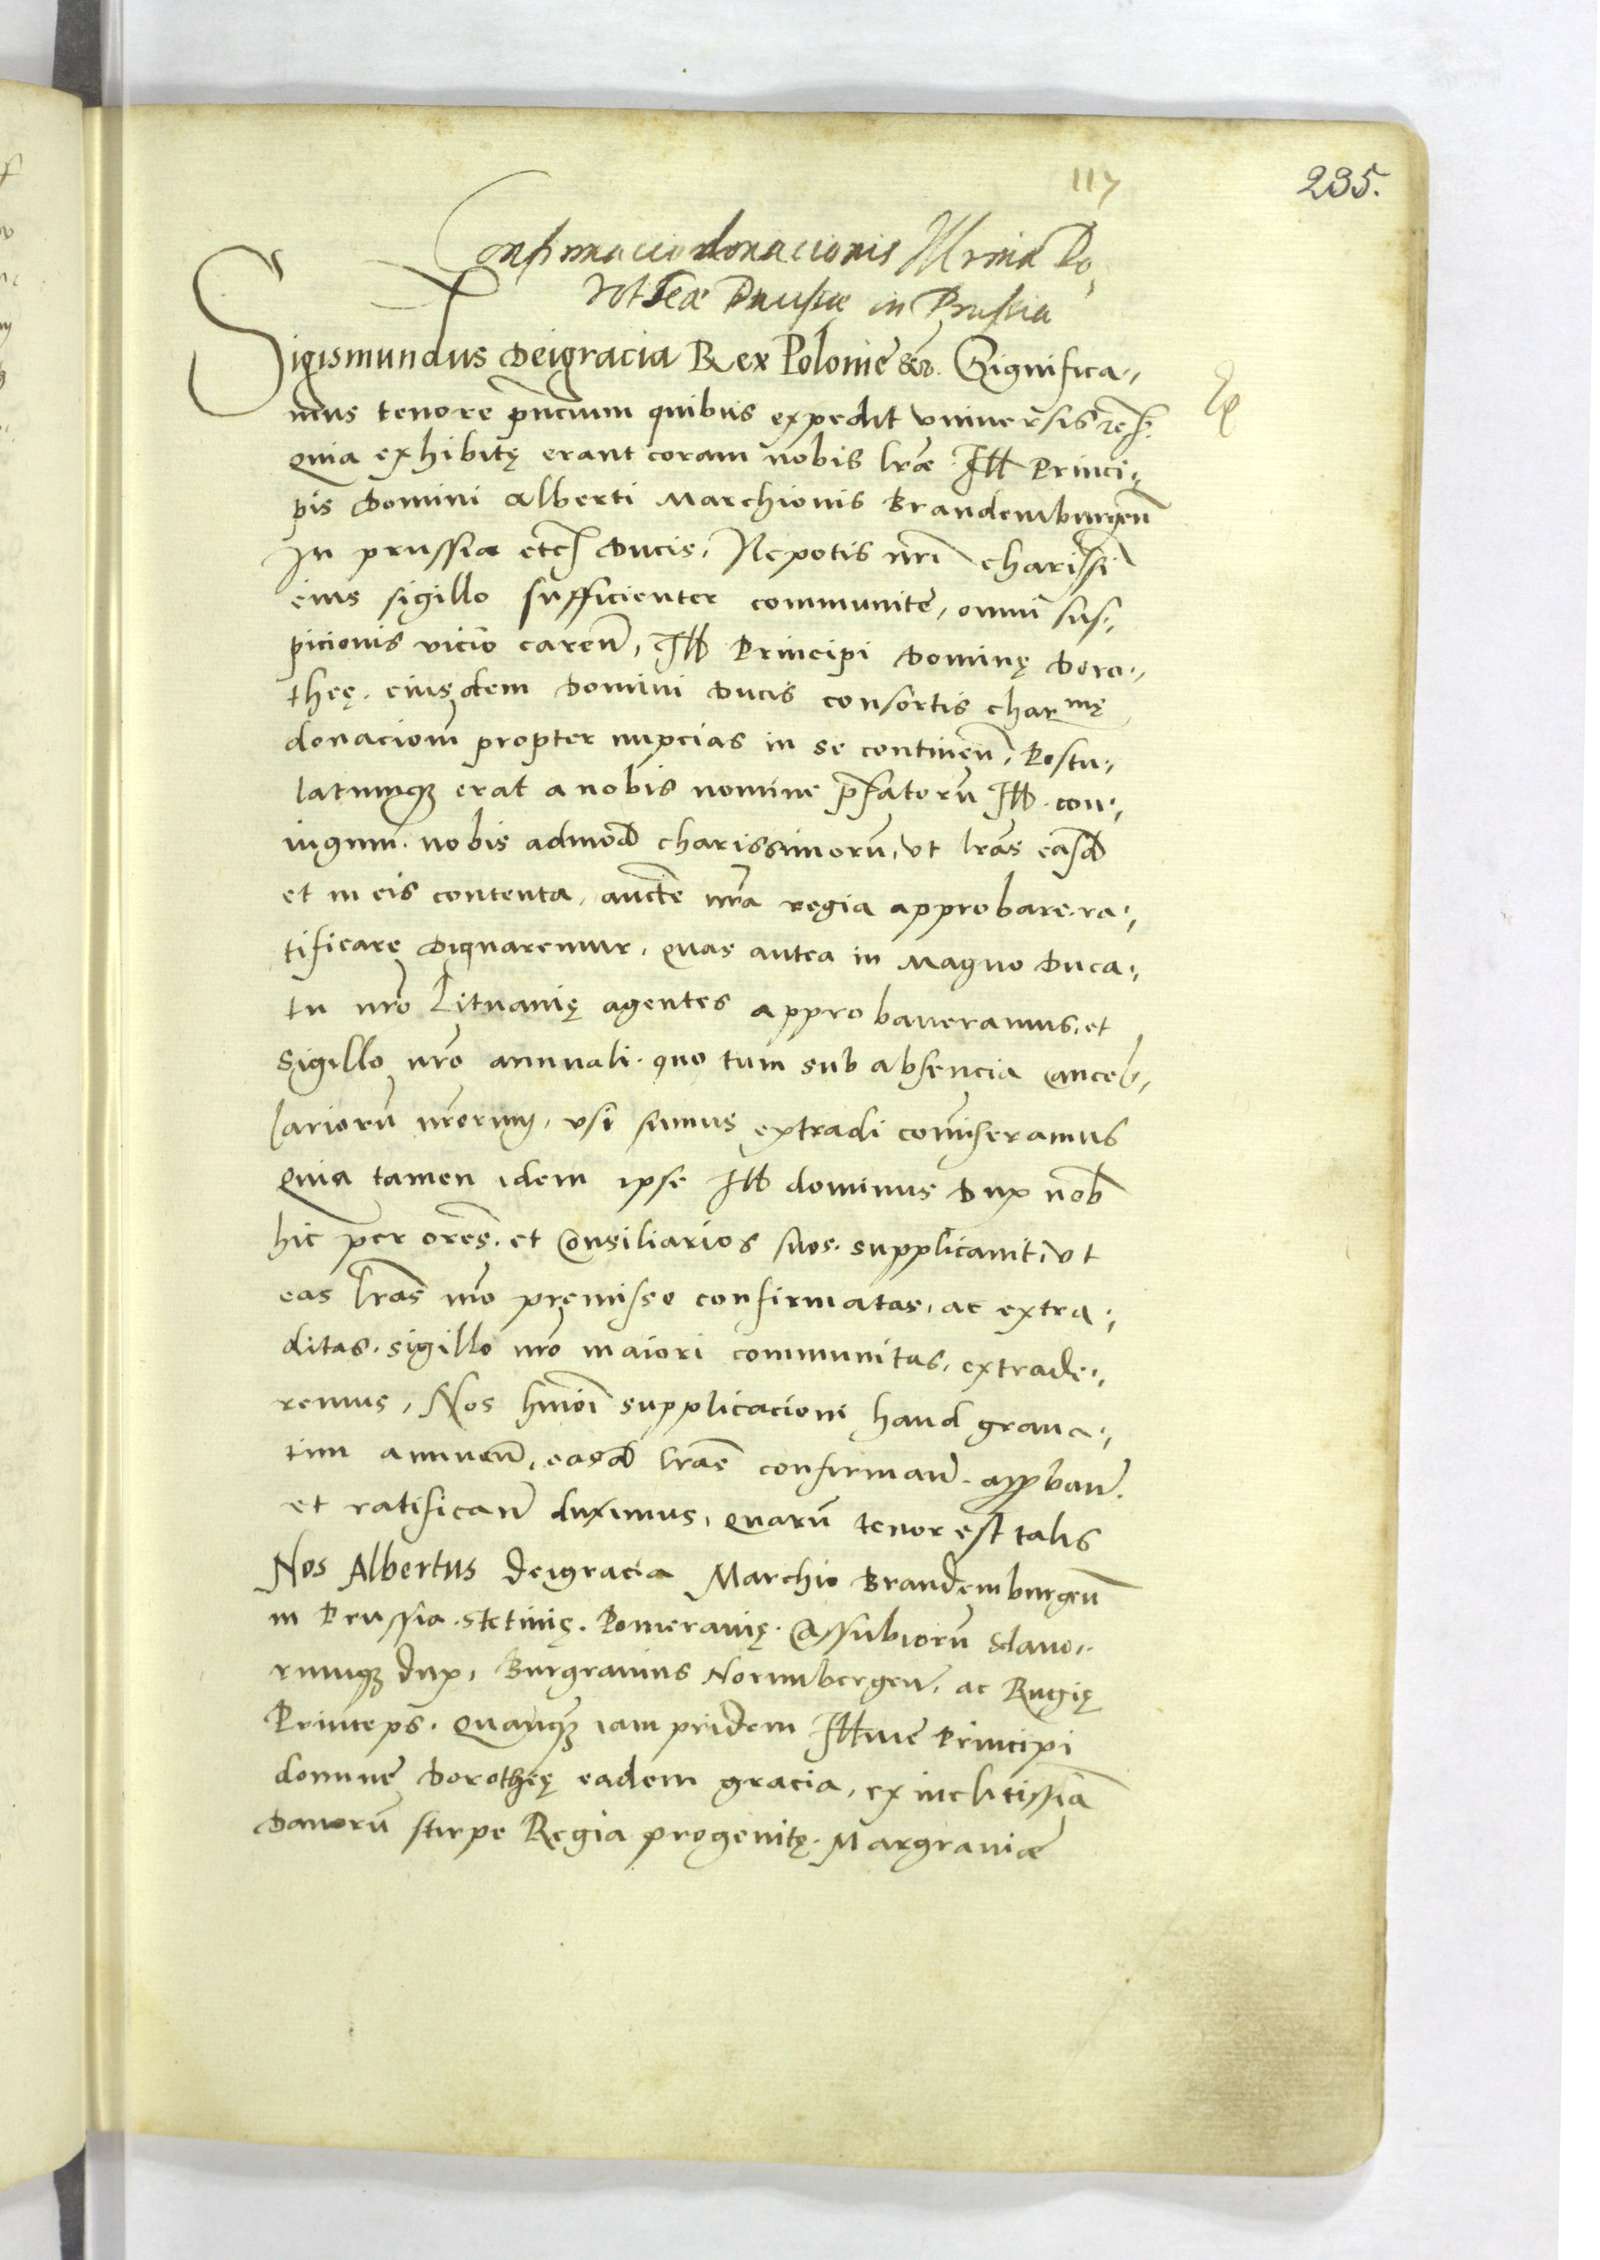 117
235.
Confirmacio donacionis Illmæ Do¬
rotheæ Ducissæ in Prussia
Sigismundus Deigracia Rex Polonie &c. Significa¬
mus tenore pñcium quibus expedit vniuersis
quia exhibitę erant coram nobis lræ Ill Princi¬
pis Domini Alberti Marchionis Brandemburgeñ
In prussia etc Ducis, Nepotis nrī charissi
eius sigillo sufficienter communitę, omni sus¬
picionis vicio careñ, Ill Principi Dominę Doro¬
theę. eiusdem Domini Ducis consortis char mę
donaciom̄ propter nupcias in se contineñ, Postu¬
latumq3 erat a nobis nomine p̄fatorū Ill. con¬
iugum. nobis admod charissimorū, vt lrās easd
et in eis contenta, aucte nrā regia approbare. ra¬
tificare Dignaremur, quas antea in Magno Duca¬
tu nrō Lituanię agentes approbaueramus, et
sigillo nrō annuali. quo tum sub absencia Cancel¬
lariorū nrōrum, vsi sumus extradi comiseramus
Quia tamen idem ipse Ill dominus Dux nob
hic per ores. et Consiliarios suos. supplicauit, vt
eas lrās mo pręmisso confirmatas, ac extra¬
ditas. sigillo nrō maiori communitas, extrade¬
remus, Nos hmōi supplicacioni haud graua¬
tim annueñ, easd lrās confirmañ. app̄bañ.
et ratificañ duximus, quarū tenor est talis
Nos Albertus Deigracia Marchio Brandemburgeñ
in Prussia. Stetinię. Pomeranię. Cassubiorū Sclauo¬
rumq3 dux, Burgrauius Nornnbergeñ, ac Rugię
Princeps. Quanq3 iam pridem Illme Principi
domine Dorotheę eadem gracia, ex inclitissiā
Danorū stirpe Regia progenitę. Margrauiæ